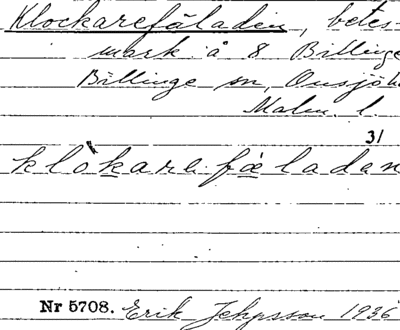 Klockarefäladen, betes-
mark å 8 Billinge
Billinge sn, Onsjö h
Malm. l.
31
klòkarefæladan
Nr 5708. Erik Jepsson 1936